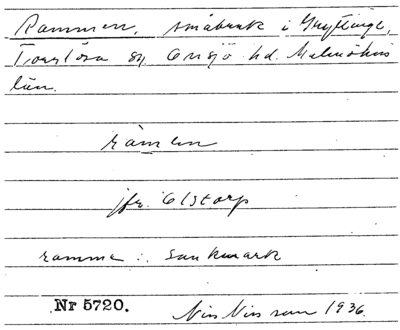 Rammen, småbruk i Gryttinge,
Torrlösa sn Onsjö hd. Malmöhus
län.
rám en
jfr. Elstorp
ramma : sankmark
Nr 5720. Nils Nilsson 1936.